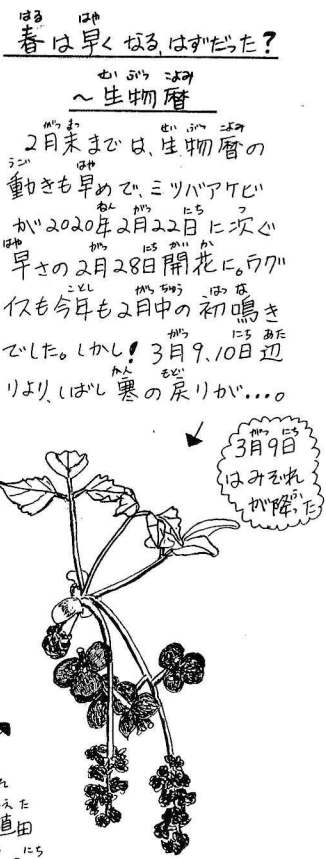 春は早くなる、はずだった？
～生物暦
2月末までは、生物暦の
動きも早めで、ミツバアケビ
が2020年2月22日に次ぐ
早さの2月28日開花に。ウグ
イスも今年も2月中の初鳴き
でした。しかし！3月9、10日辺
りより、しばし寒の戻りが…。
3月9日
はみぞれ
が降った